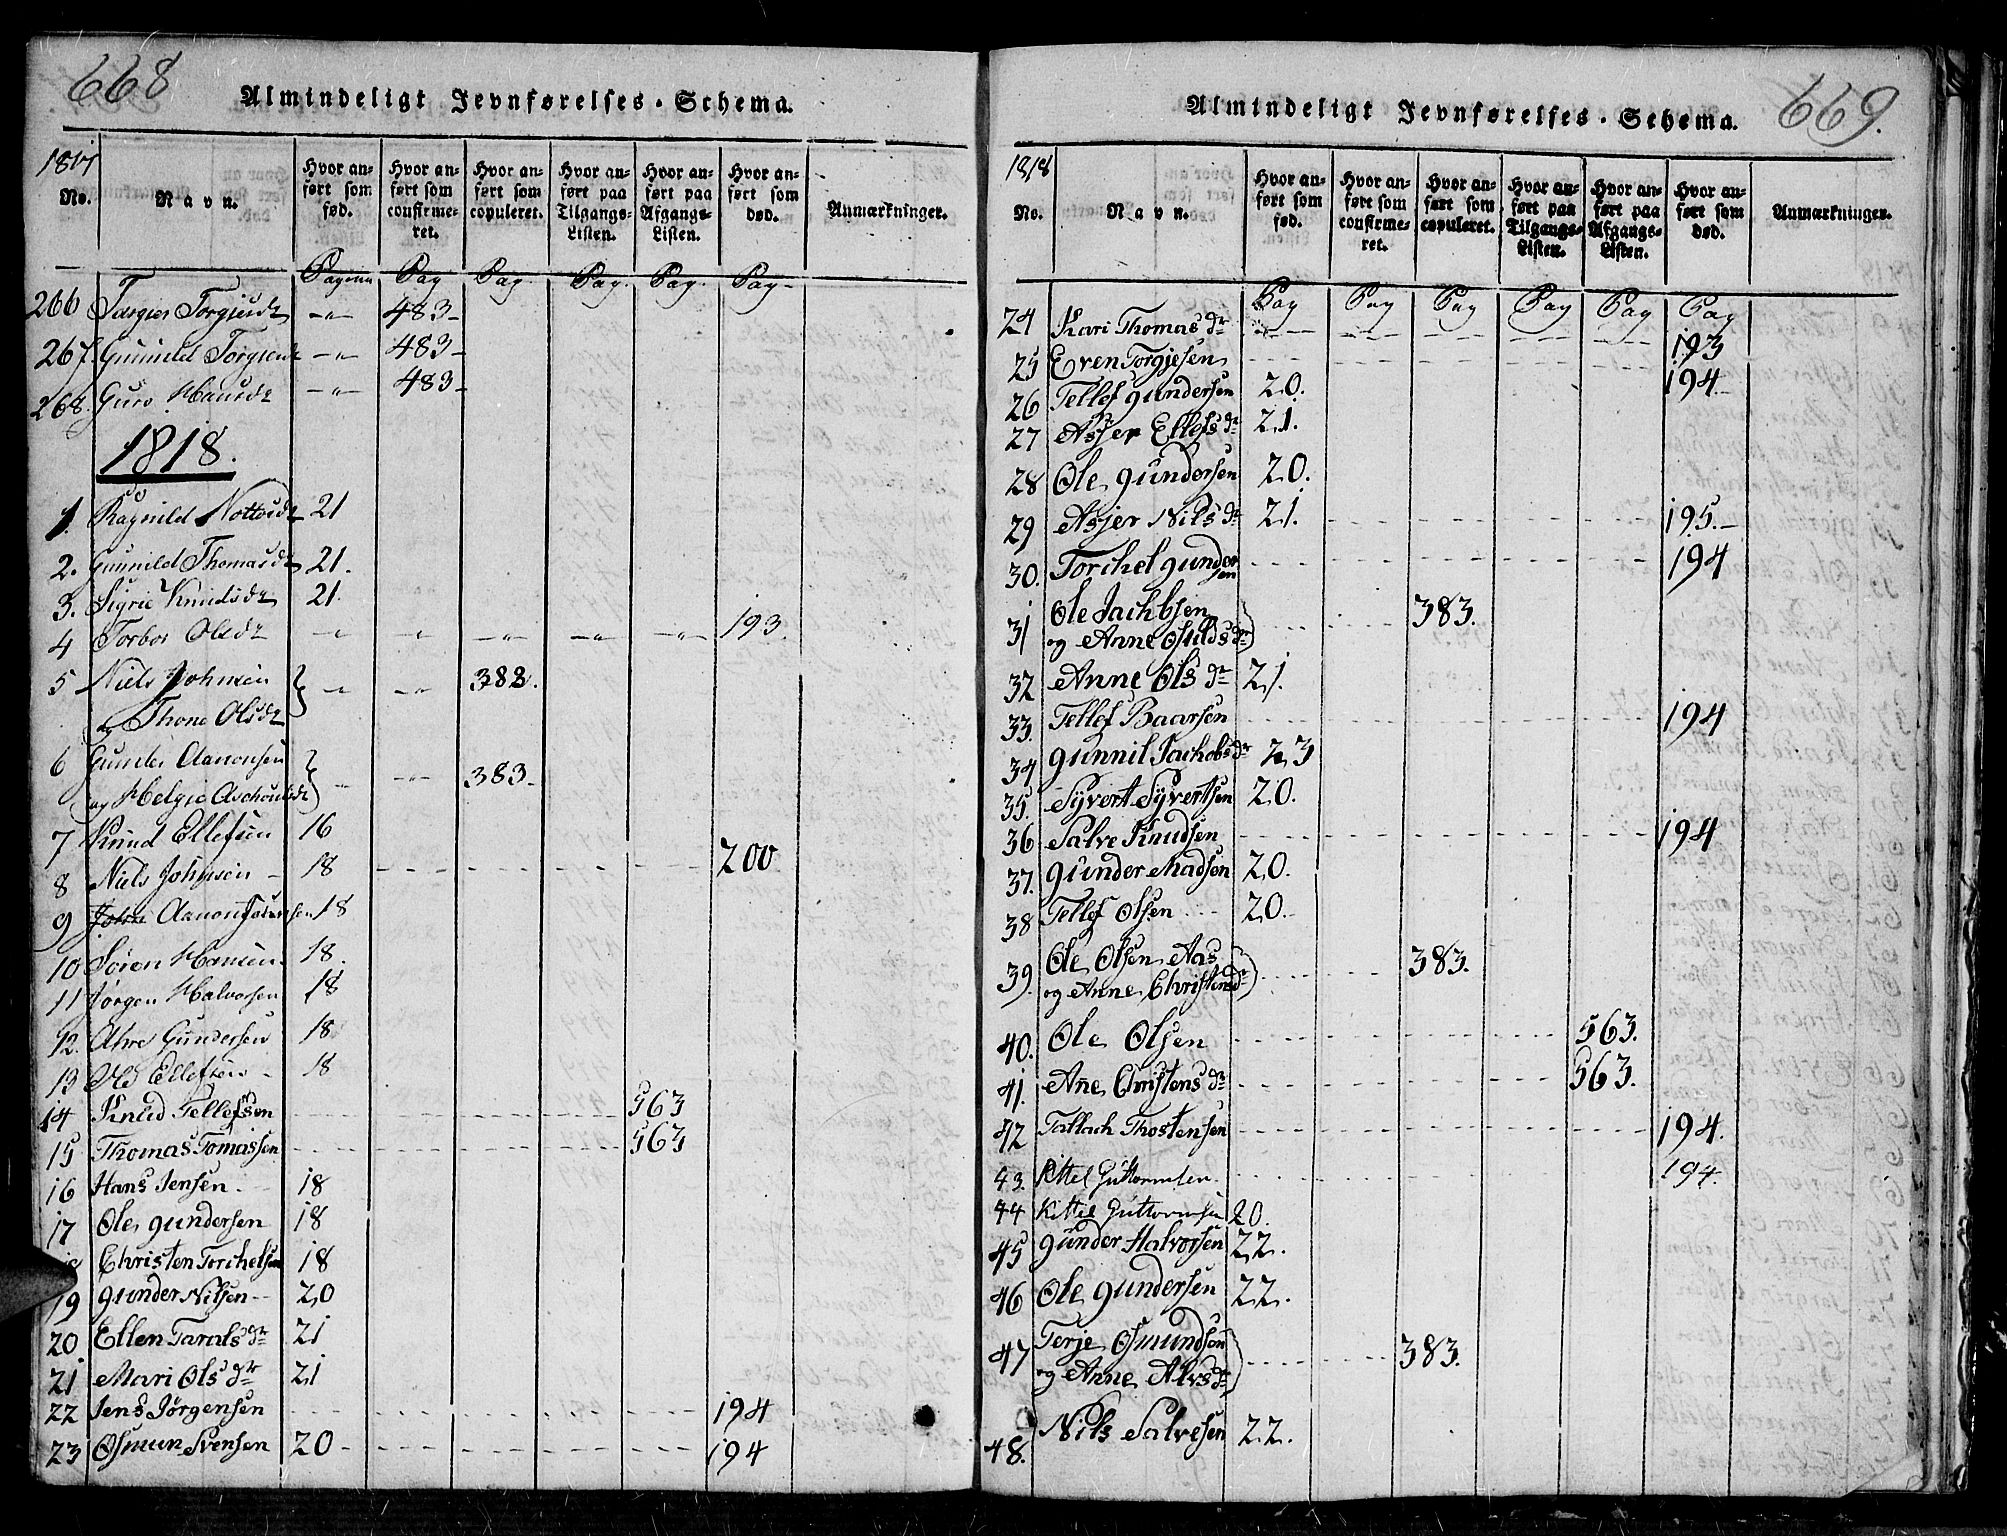 668
Almindeligt Jevnførelses-Schema.
1817
No. Navn. Hvor anført som fød. Hvor anført som confirmeret. Hvor anført som copuleret. Hvor anført paa Tilgangs-Listen. Hvor anført paa Afgangs-Listen. Hvor anført som død. Anmærkninger.
Pagina Pag Pag. Pag. Pag. Pag-
266 Targier Torgiusdr -"- 483-
267. Gunnild -"- 483-
268. Guro Hansdr -"- 483-
1818.
1. Ragnild Nottosdr 21
2. Gunnild Thomasdr 21.
3. Sigrie Knudsdr 21.
4 Torbor Olsdr -"- -"- -"- -"- -"- 193.
5 Niels Johnsen -"- -"- 382.
og Thone Olsdr
6 Gunder Aanonsen -"- 383-
og Helgie
7 Knud Ellefsen 16
8 Niels Johnsen - 18 200
9 John Aanon 18
10 Søren Hansen. 18.
11 Jørgen Halvorsen 18
12. Gundersen 18
13 Ellefsen - 18
14 Knud Tellefsen 563
15 Thomas Tomassen 563
16 Hans Jensen. 18
17 Ole gundersen 18
18 Christen Torchelsen 18
19 gunder Nilsen-- 20
20 Ellen Tarals dr 21
21 Mari Ols dr 21
22 Jens Jørgensen 194
23 Osmun Svensen 20- 194
669.
Almindeligt Jevnførelses-Schema.
1818
No. Navn. Hvor anført som fød. Hvor anført som confirmeret. Hvor anført som copuleret. Hvor anført paa Tilgangs-Listen. Hvor anført paa Afgangs-Listen. Hvor anført som død. Anmærkninger.
Pag Pag Pag Pag Pag Pag
24 Kari Thomas dr 193
25 Even Torgjesen 194-
26 Tellef gundersen 20.
27 Asjer Ellefs dr 21.
28 Ole gundersen 20.
29 Asjer Nils dr 21. 195.-
30. Torchel gundersen 194
31 Ole Jachbsen 383.
og Anne Osulds dr
32 Anne Ols dr 21.
33. Tellef Baarsen 194
34 gunnil Jachobs dr 23
35. Syvert Syvertsen 20.
36 Salve Knudsen 194
37. gunder Madsen 20.
38 Tellef Olsen 20.
39. Ole Olsen Aas 383.
og Anne Christensdr
40. Ole Olsen 563.
41. Ane Christens dr 563.
42 Tallach Thostensen 194.
43. Kittel Guttormsen. 194.
44 Kittel Guttormsen 20.
45 gunder Halvorsen 22.
46 Ole gundersen 22.
47 Terje Osmundsen 383.
og Anne Alvs dr
48. Nils Salvesen 22.